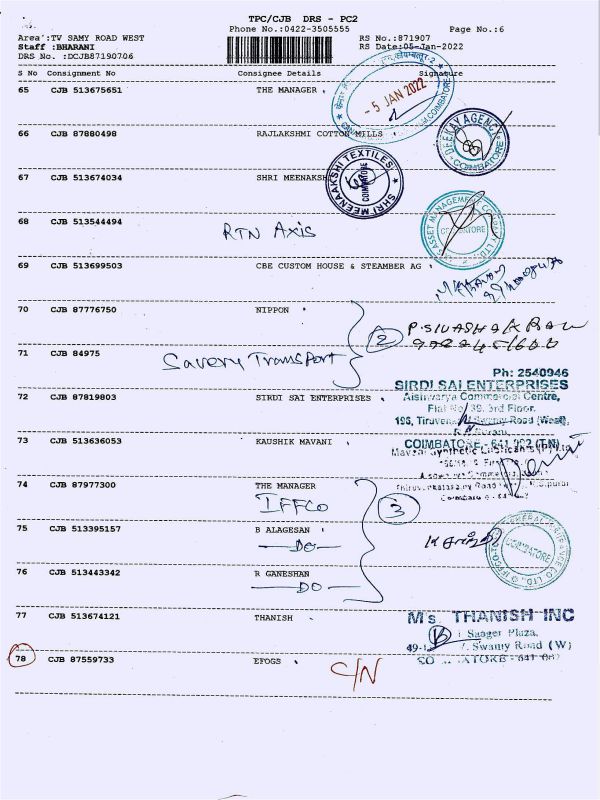 TPC/CJB DRS - PC2
Phone No.:0422-3505555
Page No.:6
Area :TV SAMY ROAD WEST
RS No.:871907
Staff :BHARANI
RS Date:05-Jan-2022
DRS No. :DCJB87190706
S No Consignment No Consignee Details Signature
65 CJB 513675651 THE MANAGER
- 5 JAN 2022
COIMBATORE
66 CJB 87880498 RAJLAKSHMI COTTON MILLS
DEEKAY AGENCY
COIMBATORE
67 CJB 513674034 SHRI MEENAKSH
SHRI MEENAAKSHI TEXTILES
COIMBATORE
68 CJB 513544494
RTN AXIS
ASSET MANAGEMENT COMPANY LTD.
COIMBATORE
69 CJB 513699503 CBE CUSTOM HOUSE & STEAMBER AG
70 CJB 87776750 NIPPON
2
71 CJB 84975
Savery Transport
Ph: 2540946
SIRDI SAI ENTERPRISES
72 CJB 87819803 SIRDI SAI ENTERPRISES
Aishwarya Commercial Centre,
Flat No 39, 3rd Floor,
196, Tiruvenkata Swamy Road (West),
73 CJB 513636053 KAUSHIK MAVANI
COIMBATORE - 641 002 (TN)
74 CJB 87977300 THE MANAGER
IFFCO
3
75 CJB 513395157 B ALAGESAN
DO
COIMBATORE
76 CJB 513443342 R GANESHAN
DO
77 CJB 513674121 THANISH
M/s. THANISH INC
Saager Plaza,
Swamy Road (W)
78 CJB 87559733 EFOGS
C/N